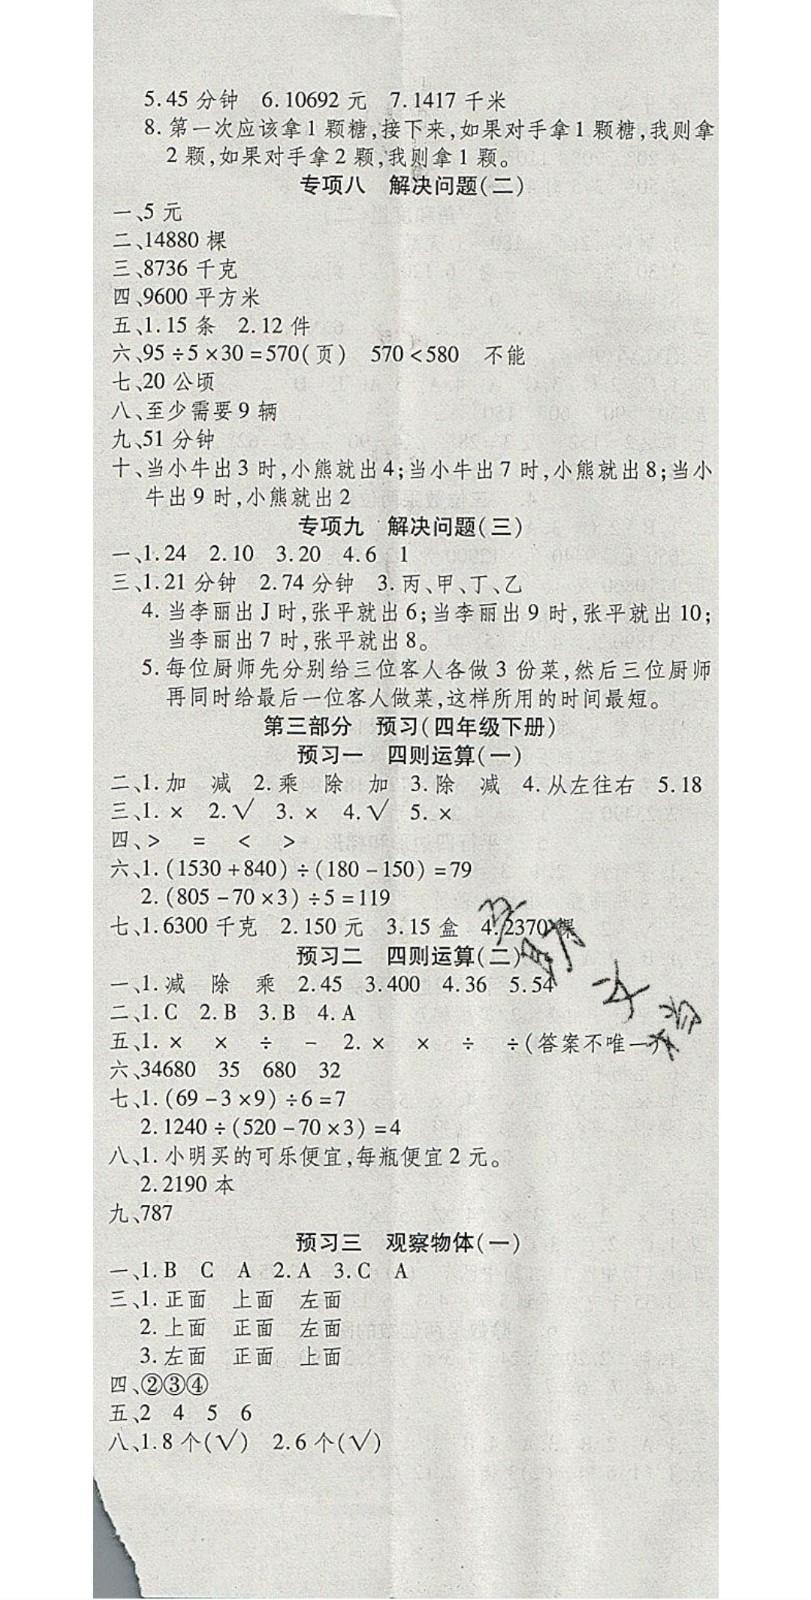 5.45 分钟 6.10692 元 7.1417 千米
8. 第一次应该拿1颗糖,接下来,如果对手拿1颗糖,我则拿
2颗,如果对手拿2颗,我则拿1颗。
专项八 解决问题(二)
一、5 元
二、14880 棵
三、8736 千克
四、9600 平方米
五、1.15 条 2.12 件
六、95÷5×30=570(页) 570<580 不能
七、20 公顷
八、至少需要 9 辆
九、51 分钟
十、当小牛出3时,小熊就出4;当小牛出7时,小熊就出8;当小
牛出9时,小熊就出2
专项九 解决问题(三)
一、1.24 2.10 3.20 4.6 1
三、1.21 分钟 2.74 分钟 3.丙、甲、丁、乙
4. 当李丽出J时,张平就出6;当李丽出9时,张平就出10;
当李丽出7时,张平就出8。
5. 每位厨师先分别给三位客人各做3份菜,然后三位厨师
再同时给最后一位客人做菜,这样所用的时间最短。
第三部分 预习(四年级下册)
预习一 四则运算(一)
二、1.加 减 2.乘 除 加 3.除 减 4.从左往右 5.18
三、1.× 2.√ 3.× 4.√ 5.×
四、> = < >
六、1.(1530+840)÷(180-150)=79
2.(805-70×3)÷5=119
七、1.6300 千克 2.150 元 3.15 盒 4.2370 棵
预习二 四则运算(二)
一、1.减 除 乘 2.45 3.400 4.36 5.54
二、1.C 2.B 3.B 4.A
五、1.× × ÷ - 2.× × ÷ ÷(答案不唯一)
六、34680 35 680 32
七、1.(69-3×9)÷6=7
2.1240÷(520-70×3)=4
八、1.小明买的可乐便宜,每瓶便宜2元。
2.2190 本
九、787
预习三 观察物体(一)
一、1.B C A 2.A 3.C A
三、1.正面 上面 左面
2.上面 正面 左面
3.左面 正面 上面
四、②③④
五、2 4 5 6
八、1.8 个(√) 2.6 个(√)